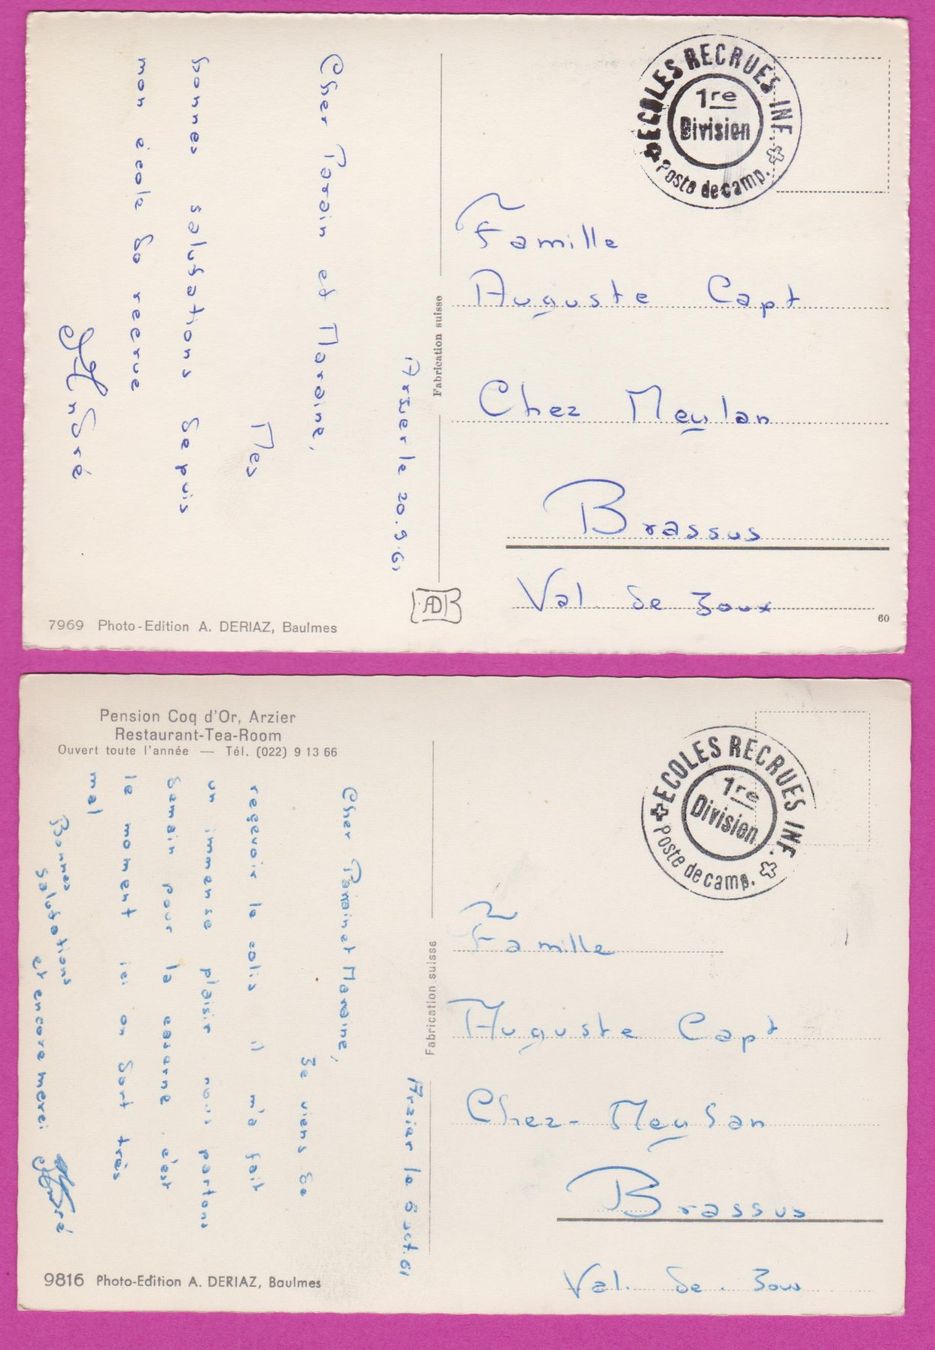 ECOLES RECRUES INF.
1re
Division
Poste de camp.
Famille
Auguste Capt
Chez Meylan
Brassus
Val de Joux
60
Fabrication suisse
Arzier le 20.9.61
Cher Parain et Maraine,
Mes
bonnes salutations depuis
mon école de recrue
André
ADB
7969 Photo-Edition A. DERIAZ, Baulmes
Pension Coq d'Or, Arzier
Restaurant-Tea-Room
Ouvert toute l'année — Tél. (022) 9 13 66
ECOLES RECRUES INF.
1re
Division
Poste de camp.
Famille
Auguste Capt
Chez-Meylan
Brassus
Val. de. Joux
Fabrication suisse
Arzier le 6 oct. 61
Cher Parain et Maraine,
Je viens de
reçevoir le colis il m'a fait
un immense plaisir nous partons
demain pour la caserne c'est
le moment ici on dort très
mal
Bonnes
salutations
et encore merci André
9816 Photo-Edition A. DERIAZ, Baulmes